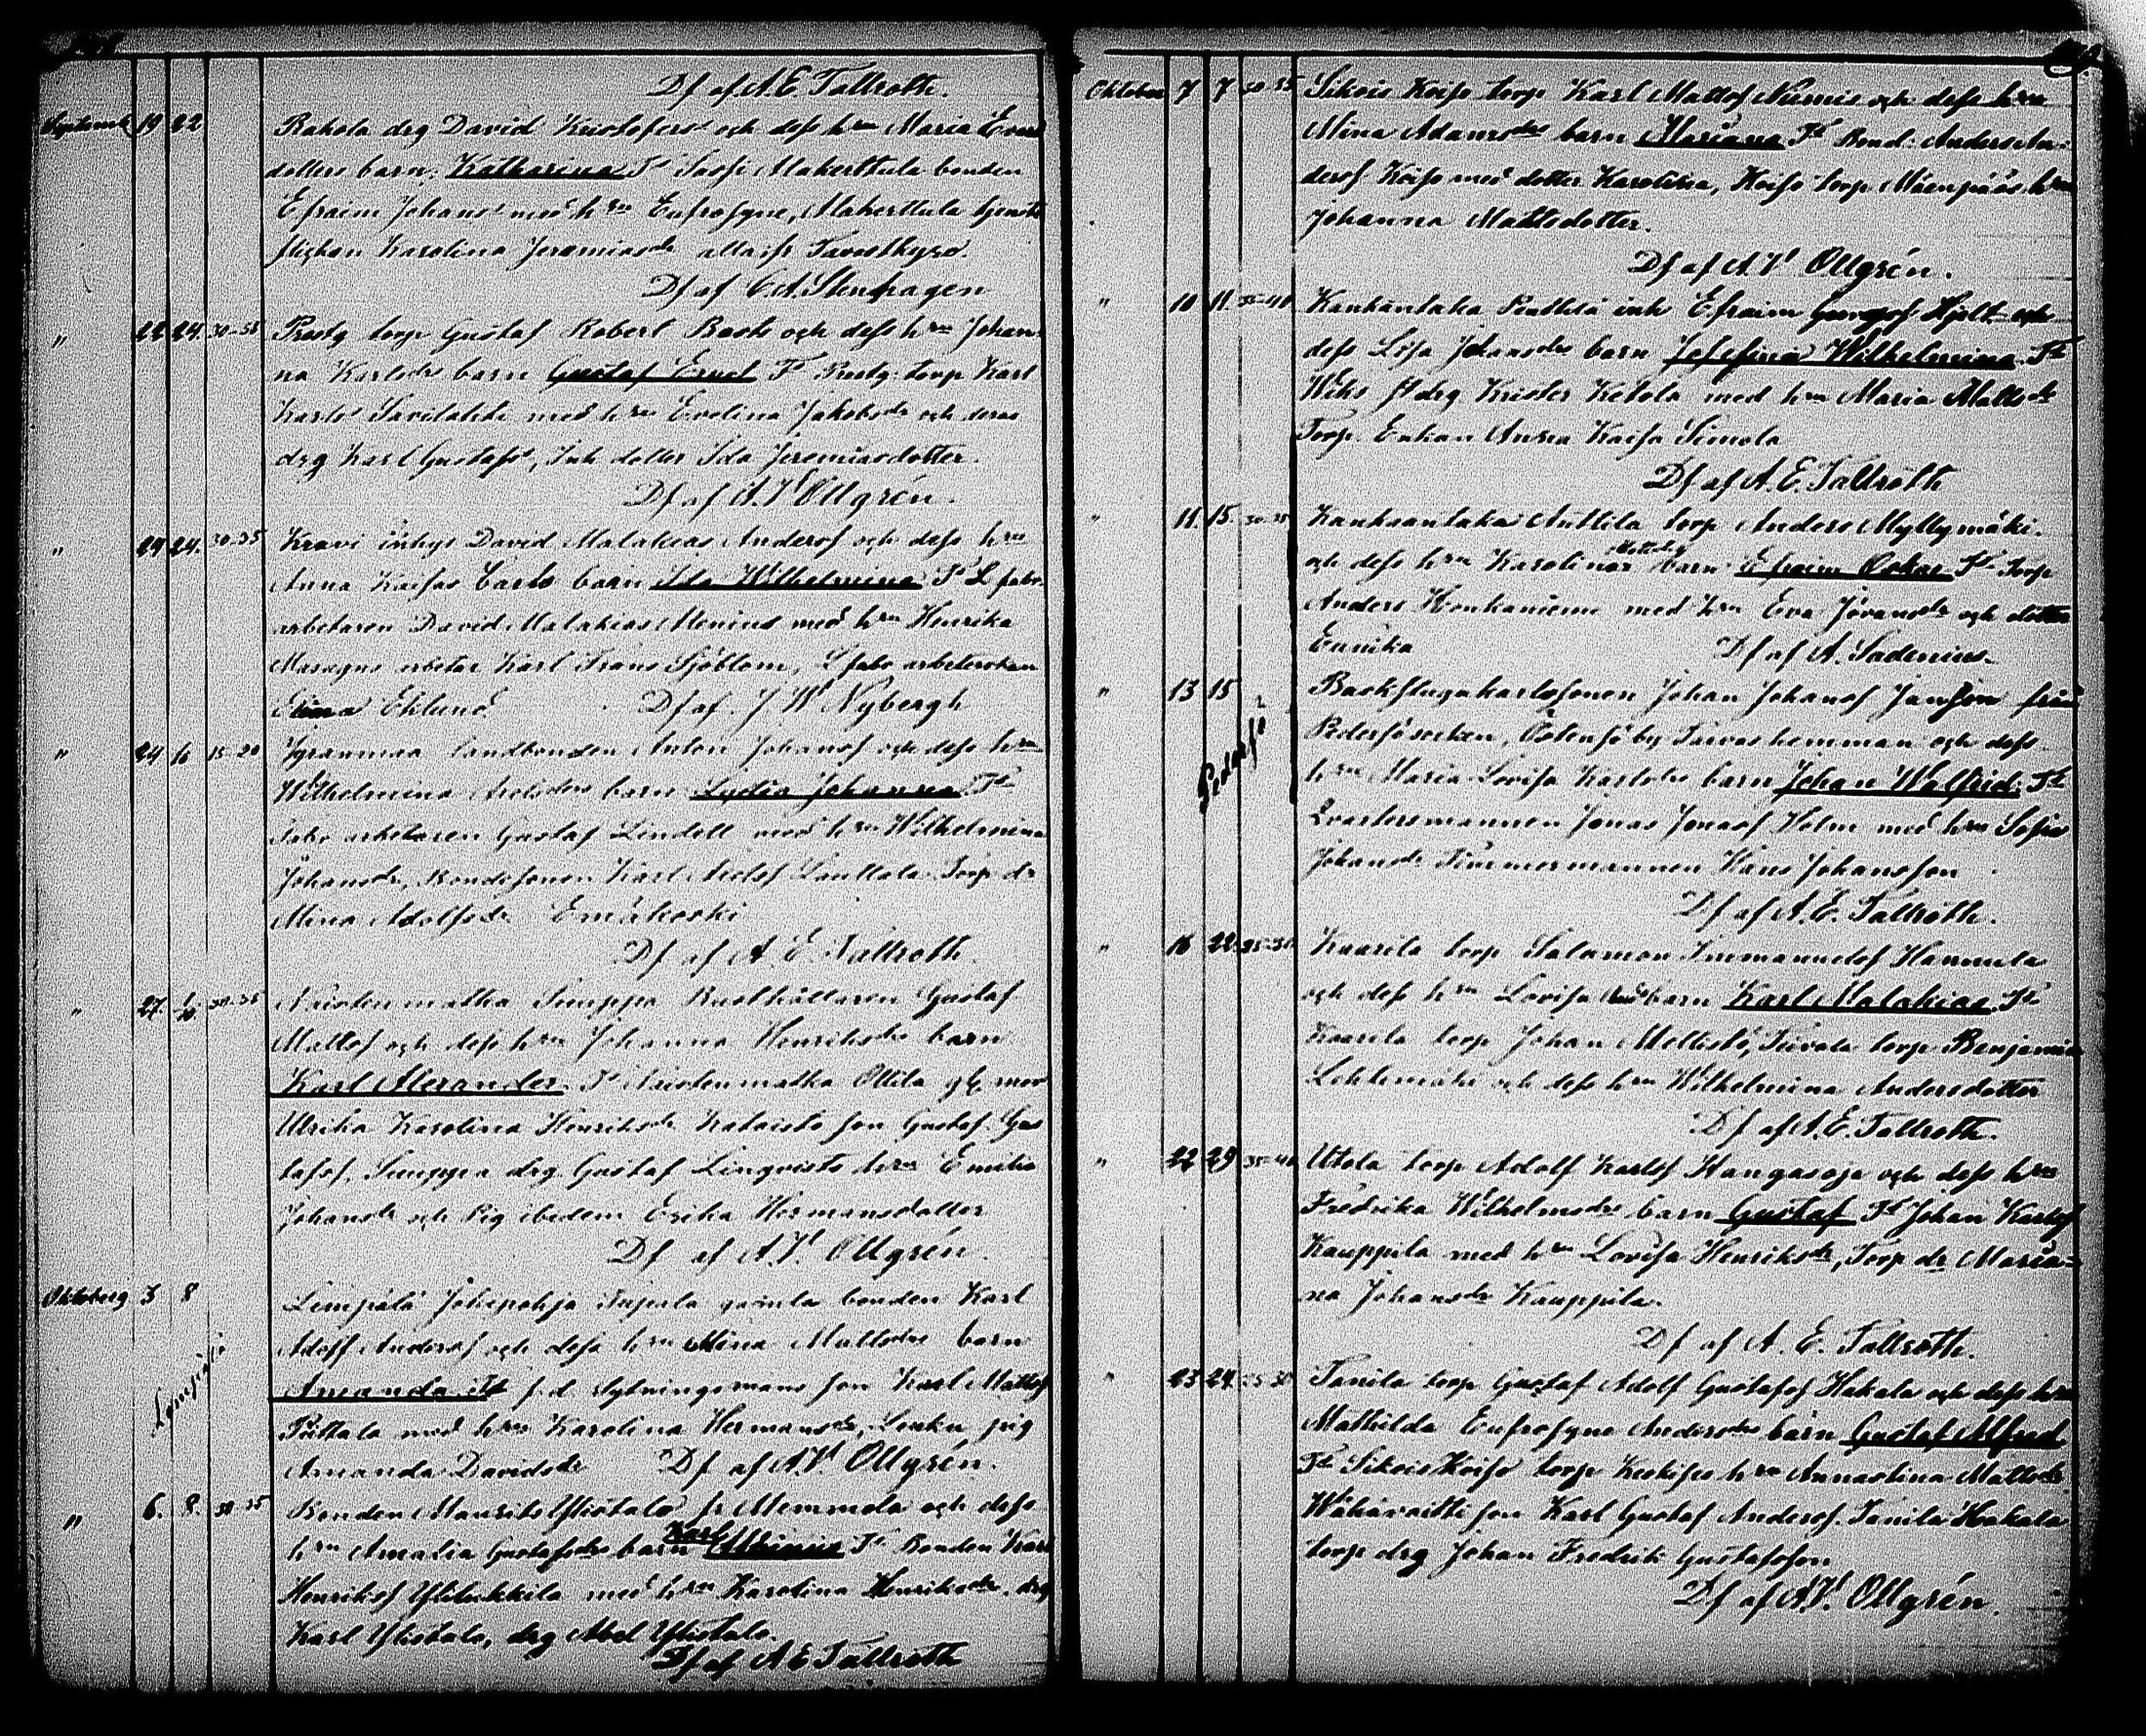 Df af A. E. Tallroth.
Septemb 19 22 Rahola drg David Kristofers och dess hru Maria Evas
dotters barn: Katharina Ft Sasfi Makerttula bonden
Efraim Johans med hru Eufrosyne, Makerttula tjenste
flickan Karolina Jeremiasdr alla ifr Tavastkyro.
Df af C. A. Stenhagen
" 22. 24. 30-35 Prestg torp Gustaf Robert Back och dess hru Johan
na Karlsdrs barn Gustaf Ernst Ft Prestg. torp Karl
Karls Savilahti med hru Evelina Jakobsdr och deras
drg Karl Gustafss, Inh dotter Ida Jeremiasdotter.
Df af A. V. Ollgrén.
" 24. 30-35 Kravi inhys David Malakias Anderss och dess hru
Anna Kaisas Carls barn Ida Wilhelmina Ft L fabr.
arbetaren David Malakias Menius med hru Henrika
Masugns arbetar Karl Frans Sjöblom, L fabr arbeterskan
Eklund. Df af J W Nybergh
" 24 16 15-20 landbonden Anton Johanss och dess hru
Wilhelmina barn Lydia Johanna Ft
fabr arbetaren Gustaf Lindell med hru Wilhelmina
Johansdr, Bondesonen Karl Lauttala Torp dr
Mina Adolfsdr Emäkoski
Df af A. E. Tallroth.
" 27. 30-35 Simppa Rusthållaren Gustaf
Mattss och dess hru Johanna Henriksdrs barn
Karl Alexander. Ft Ottila
Ulrika Karolina Henriksdr son Gustaf Gus
tafss, Simppa drg Gustaf Linqvists hru Emilia
Johansdr och Pig ibidem Erika Hermansdotter
Df af A. V. Ollgrén.
Oktoberg 3 8 Lempälä Jokipohja bonden Karl
Adolf Anderss och dess hru Mina Mattsdrs barn
Lempälä
Amanda. Ft f.d Rytningsmans son Karl Mattss
med hru Karolina Hermansdr, pig
Amanda Davidsdr Df af A. V. Ollgrén.
" 6. 8. 30-35 Bonden Maurits Ylistalo fr Memmola och dess
hru Amalia Gustafsdrs barn Karl Ft Bonden Karl
Henrikss Ylilukkila med hru Karolina Henriksdr. drg
Karl Ylistalo, drg Abel Ylistalo.
Df af A E Tallroth
Oktober 7 7 30 35 Sikois Koiso torp Karl Mattss Niemis och dess hru
Mina Adamsdrs barn Mariana Ft Bond: Anders An-
derss Koiso med dotter Karolina, Koiso torp Mäenpääs hru
Johanna Mattsdotter.
Df af A. V. Ollgrén.
" 10 11. 35-40 Kankantaka Penttilä inh Efraim Hjelt och
dess Lisa Johansdrs barn Josefina Wilhelmina Ft
st drg Krister Ketola med hru Maria Mattsdr
Torp. Enkan Anna Kaisa Simola
Df af A. E. Tallroth
" 11. 15. 30-35 Kankaantaka Anttila torp Anders Myllymäki.
och dess hru Karolinas Mattsdrs barn Efraim Oskar Ft Torp
Anders Honkaniemi med hru Eva Jöransdr och dotter
Eunika Df af A. Sadenius.
" 13 15 Backstugukarlssonen Johan Johanss Jansson från
Pedersö
Pedersö socken, Östensö by hemman och dess
hru Maria Lovisa Karlsdrs barn Johan Walfrid. Ft
Qvartersmannen Jonas Jonass Holm med hru Sofia
Johansdr Timmermannen Hans Johansson
Df af A. E. Tallroth.
" 16 22. 25-30 Kaarila torp Salomon Immanuelss Hannula
och dess hru Lovisa barn Karl Malakias. Ft
Kaarila torp Johan Mellistö, torp Benjamin
Lehtimäki och dess hru Wilhelmina Andersdotter
Df af A. E. Tallroth.
" 22 29 35-40 Utola torp Adolf Karlss Kangasoja och dess hru
Fredrika Wilhelmsdrs barn Gustaf Ft Johan Karlss
Kauppila med hru Lovisa Henriksdr, Torp dr Maria-
na Johansdr Kauppila.
Df af A. E. Tallroth.
" 23 24. 25 30 Tanila torp Gustaf Adolf Gustafss Hakala och dess hru
Mathilda Eufrosyne Andersdrs barn Gustaf Alfred
Ft Sikois Koiso torp hru Annastina Mattsdr
son Karl Gustaf Anderss. Tanila Hakala
torp drg Johan Fredrik Gustafsson
Df af A. V. Ollgrén.